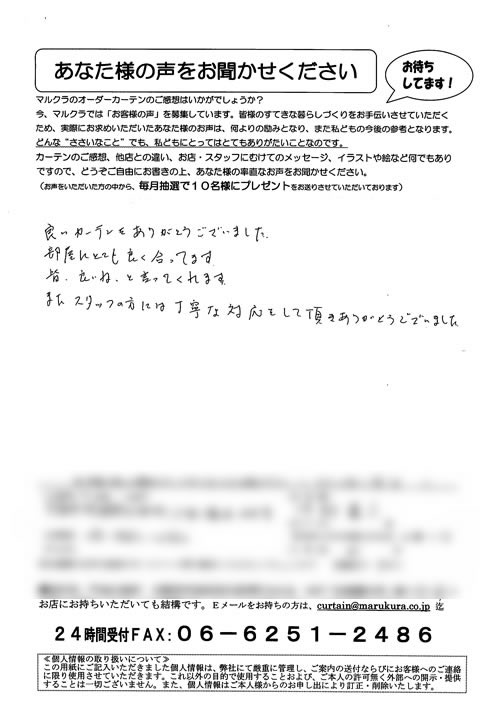 あなた様の声をお聞かせください
お待ち
してます！
マルクラのオーダーカーテンのご感想はいかがでしょうか？
今、マルクラでは「お客様の声」を募集しています。皆様のすてきな暮らしづくりをお手伝いさせていただく
ため、実際にお求めいただいたあなた様のお声は、何よりの励みとなり、また私どもの今後の参考となります。
どんな“ささいなこと”でも、私どもにとってはとてもありがたいことなのです。
カーテンのご感想、他店との違い、お店・スタッフにむけてのメッセージ、イラストや絵など何でもあり
ですので、どうぞご自由にお書きの上、あなた様の率直なお声をお聞かせください。
（お声をいただいた方の中から、毎月抽選で１０名様にプレゼントをお送りさせていただいております）
良いカーテンをありがとうございました。
部屋にとても良く合ってます。
皆、良いね、と言ってくれます。
またスタッフの方には丁寧な対応をして頂きありがとうございました
お店にお持ちいただいても結構です。Ｅメールをお持ちの方は、curtain@marukura.co.jp 迄
２４時間受付FAX：０６－６２５１－２４８６
≪個人情報の取り扱いについて≫
この用紙にご記入いただきました個人情報は、弊社にて厳重に管理し、ご案内の送付ならびにお客様へのご連絡
に限り使用させていただきます。これ以外の目的で使用することおよび、ご本人の許可無く外部への開示・提供
することは一切ございません。また、個人情報はご本人様からのお申し出により訂正・削除いたします。